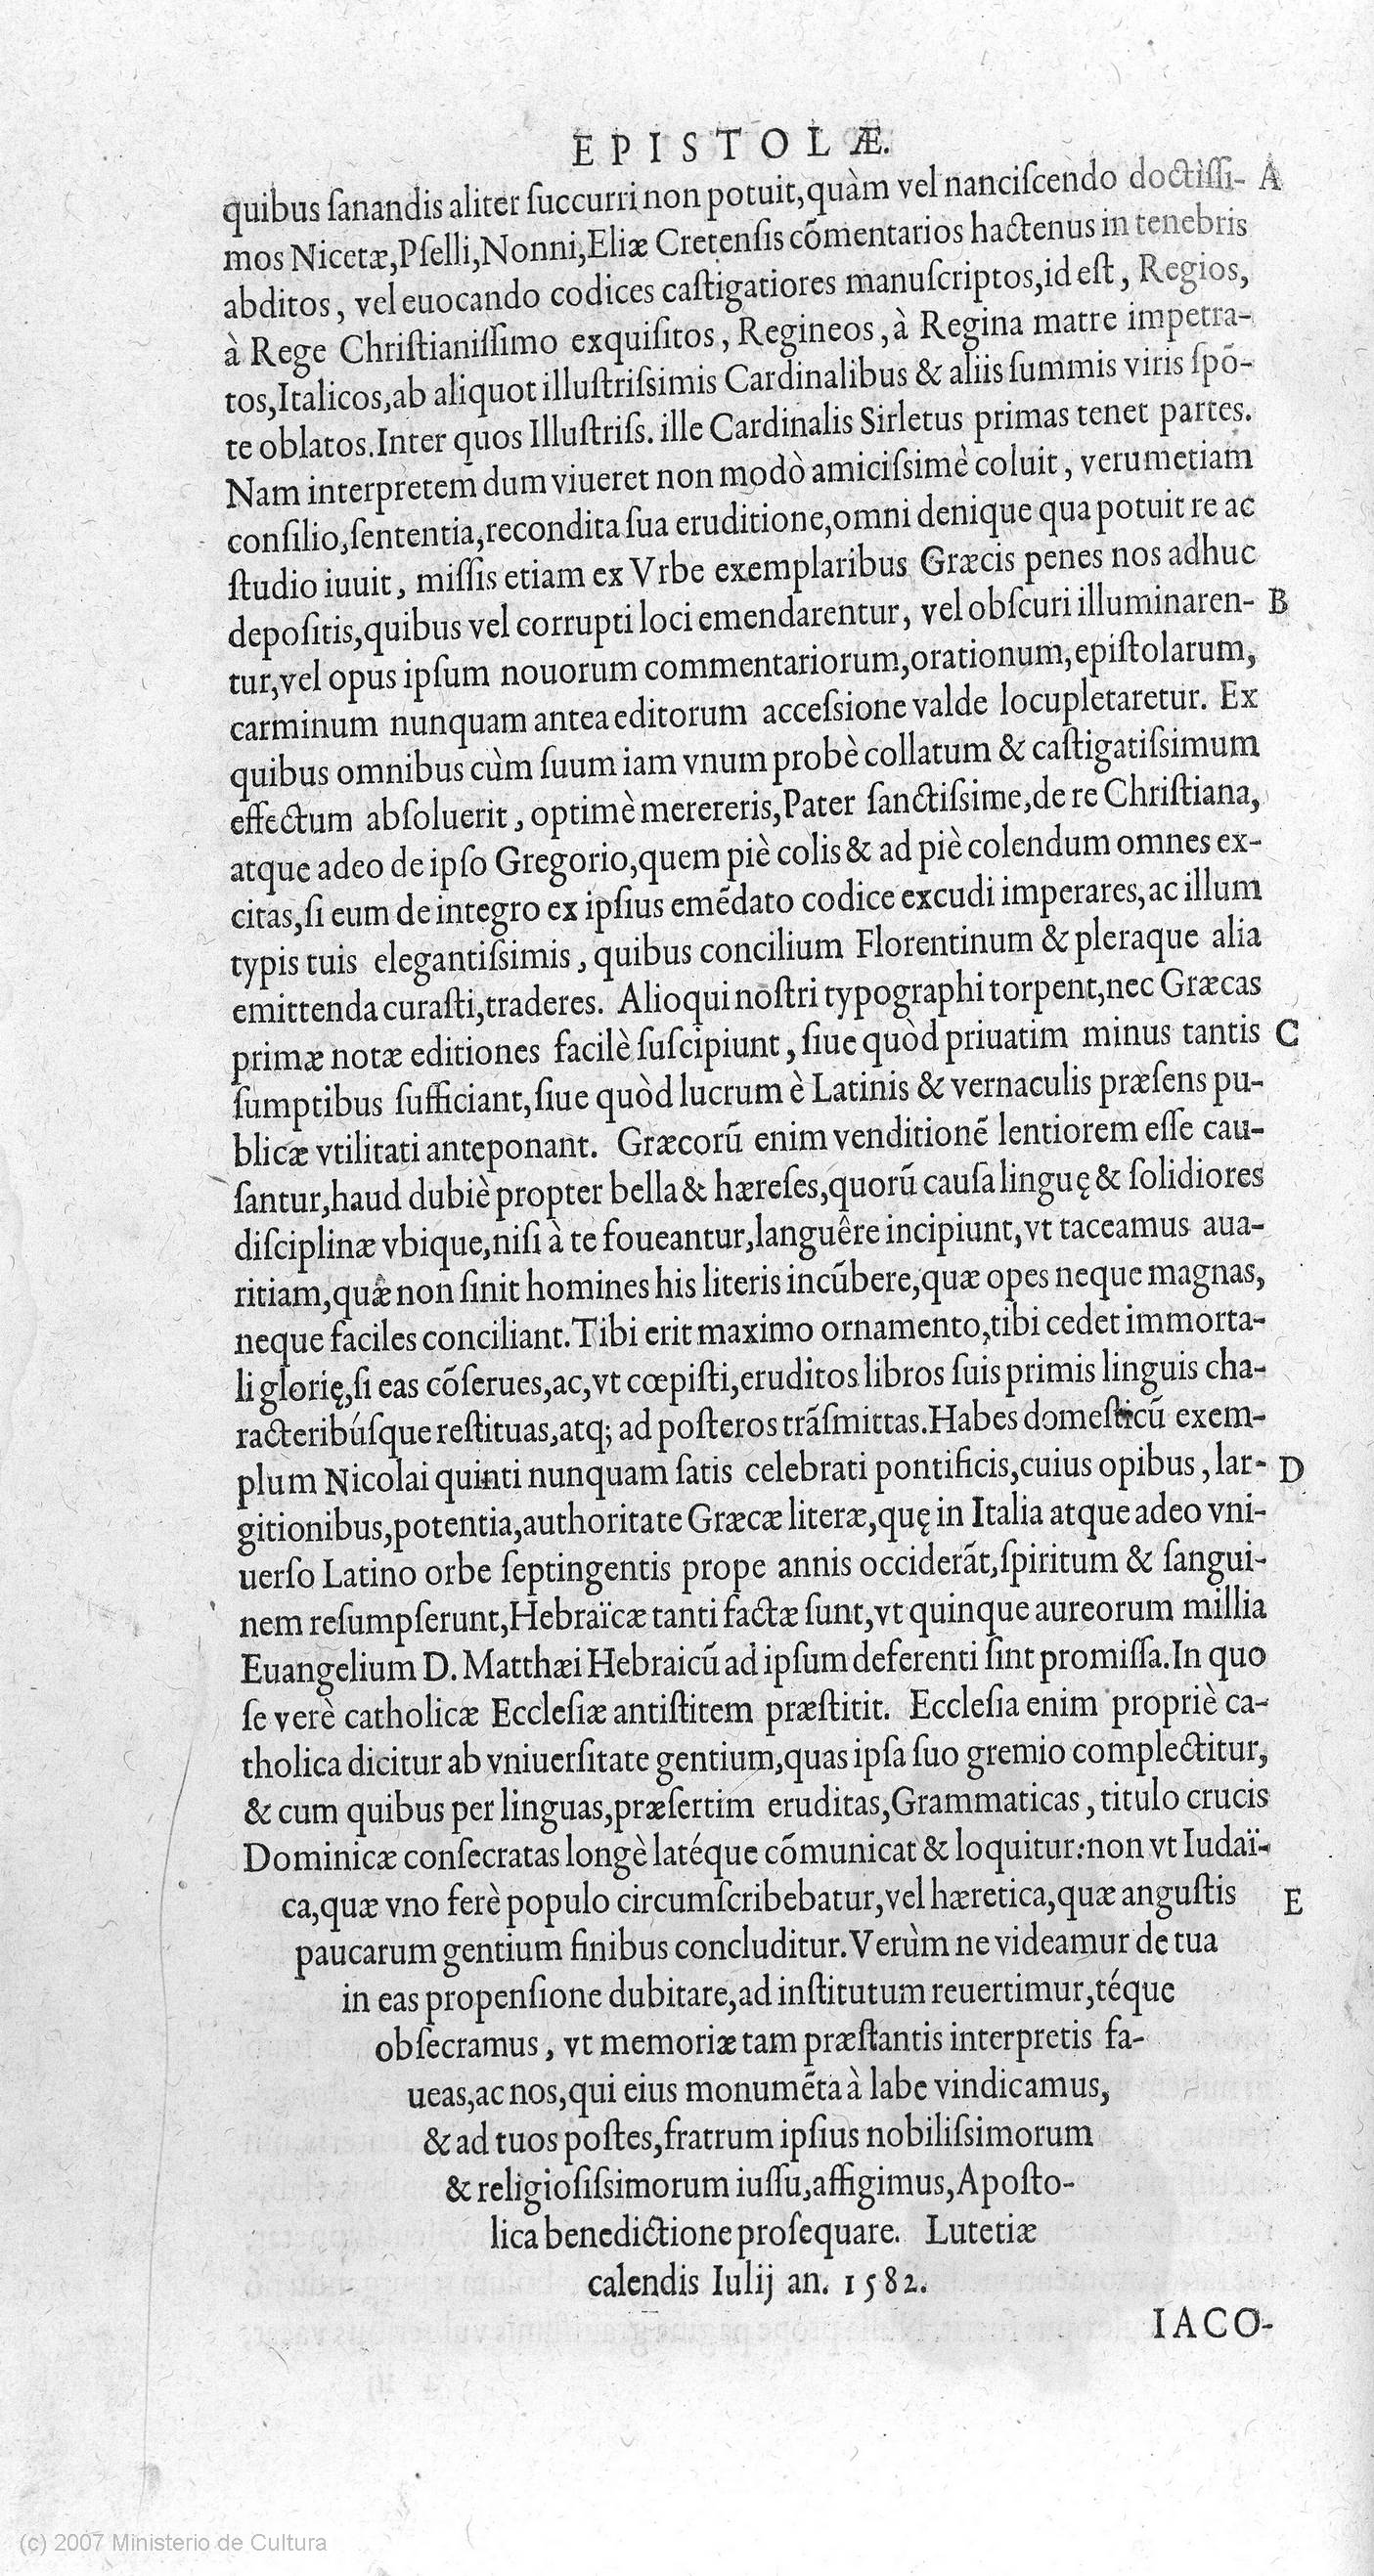 EPISTOLÆ.
quibus ſanandis aliter ſuccurri non potuit, quàm vel nanciſcendo doctiſſi- A
mos Nicetæ, Pſelli, Nonni, Eliæ Cretenſis cõmentarios hactenus in tenebris
abditos, vel euocando codices caſtigatiores manuſcriptos, id eſt, Regios,
à Rege Chriſtianiſſimo exquiſitos, Regineos, à Regina matre impetra-
tos, Italicos, ab aliquot illuſtriſsimis Cardinalibus & aliis ſummis viris ſpõ-
te oblatos. Inter quos Illuſtriſs. ille Cardinalis Sirletus primas tenet partes.
Nam interpretem dum viueret non modò amiciſsimè coluit, verumetiam
conſilio, ſententia, recondita ſua eruditione, omni denique qua potuit re ac
ſtudio iuuit, miſſis etiam ex Vrbe exemplaribus Græcis penes nos adhuc
depoſitis, quibus vel corrupti loci emendarentur, vel obſcuri illuminaren- B
tur, vel opus ipſum nouorum commentariorum, orationum, epiſtolarum,
carminum nunquam antea editorum acceſsione valde locupletaretur. Ex
quibus omnibus cùm ſuum iam vnum probè collatum & caſtigatiſsimum
effectum abſoluerit, optimè merereris, Pater ſanctiſsime, de re Chriſtiana,
atque adeo de ipſo Gregorio, quem piè colis & ad piè colendum omnes ex-
citas, ſi eum de integro ex ipſius emẽdato codice excudi imperares, ac illum
typis tuis elegantiſsimis, quibus concilium Florentinum & pleraque alia
emittenda curaſti, traderes. Alioqui noſtri typographi torpent, nec Græcas
primæ notæ editiones facilè ſuſcipiunt, ſiue quòd priuatim minus tantis C
ſumptibus ſufficiant, ſiue quòd lucrum è Latinis & vernaculis præſens pu-
blicæ vtilitati anteponant. Græcorũ enim venditionẽ lentiorem eſſe cau-
ſantur, haud dubiè propter bella & hæreſes, quorũ cauſa linguę & ſolidiores
diſciplinæ vbique, niſi à te foueantur, languêre incipiunt, vt taceamus aua-
ritiam, quæ non ſinit homines his literis incũbere, quæ opes neque magnas,
neque faciles conciliant. Tibi erit maximo ornamento, tibi cedet immorta-
li glorię, ſi eas cõſerues, ac, vt cœpiſti, eruditos libros ſuis primis linguis cha-
racteribúſque reſtituas, atq; ad poſteros trãſmittas. Habes domeſticũ exem-
plum Nicolai quinti nunquam ſatis celebrati pontificis, cuius opibus, lar- D
gitionibus, potentia, authoritate Græcæ literæ, quę in Italia atque adeo vni-
uerſo Latino orbe ſeptingentis prope annis occiderãt, ſpiritum & ſangui-
nem reſumpſerunt, Hebraïcæ tanti factæ ſunt, vt quinque aureorum millia
Euangelium D. Matthæi Hebraicũ ad ipſum deferenti ſint promiſſa. In quo
ſe verè catholicæ Eccleſiæ antiſtitem præſtitit. Eccleſia enim propriè ca-
tholica dicitur ab vniuerſitate gentium, quas ipſa ſuo gremio complectitur,
& cum quibus per linguas, præſertim eruditas, Grammaticas, titulo crucis
Dominicæ conſecratas longè latéque cõmunicat & loquitur: non vt Iudaï-
ca, quæ vno ferè populo circumſcribebatur, vel hæretica, quæ anguſtis E
paucarum gentium finibus concluditur. Verùm ne videamur de tua
in eas propenſione dubitare, ad inſtitutum reuertimur, téque
obſecramus, vt memoriæ tam præſtantis interpretis fa-
ueas, ac nos, qui eius monumẽta à labe vindicamus,
& ad tuos poſtes, fratrum ipſius nobiliſsimorum
& religioſiſsimorum iuſſu, affigimus, Apoſto-
lica benedictione proſequare. Lutetiæ
calendis Iulij an. 1582.
IACO-
(c) 2007 Ministerio de Cultura